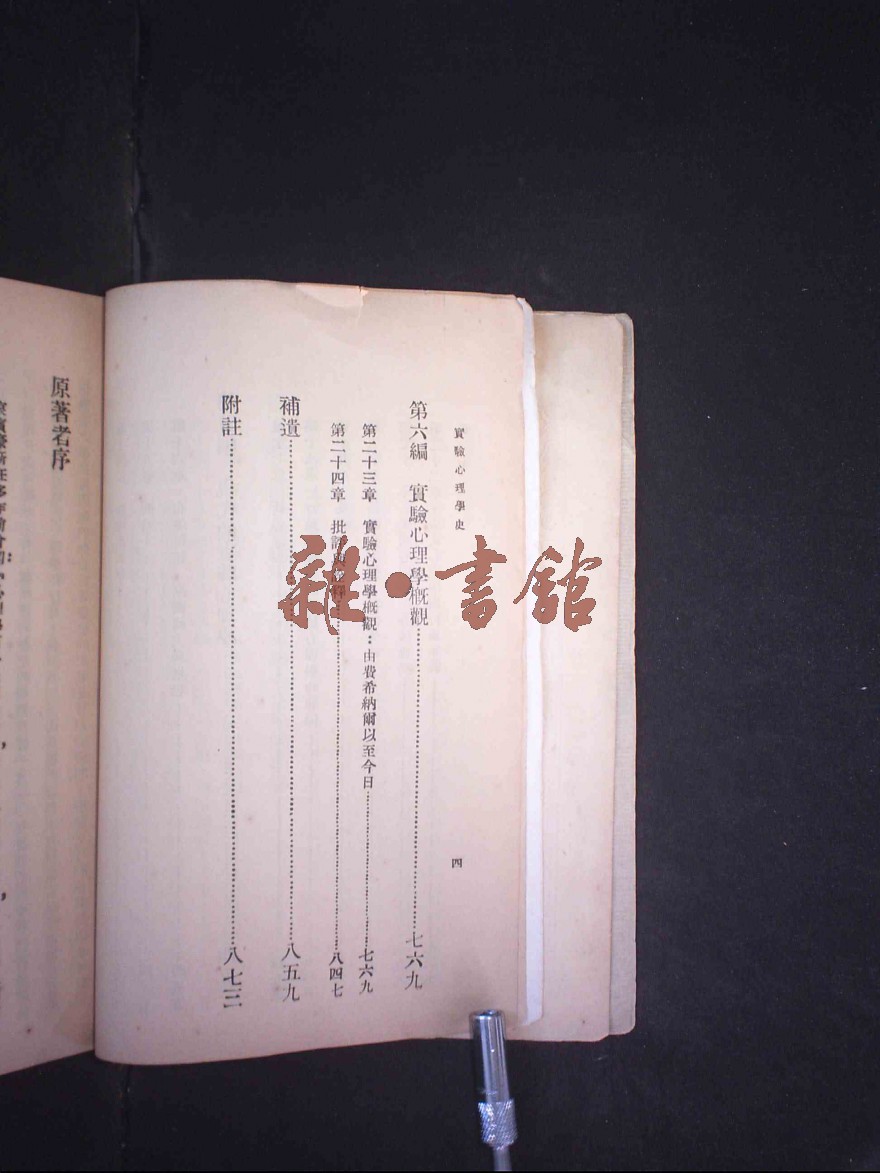 實驗心理學史
四
第六編 實驗心理學概觀……七六九
第二十三章 實驗心理學概觀：由費希納爾以至今日……七六九
第二十四章 批評與解釋……八四七
補遺……八五九
附註……八七三
原著者序
雜·書館